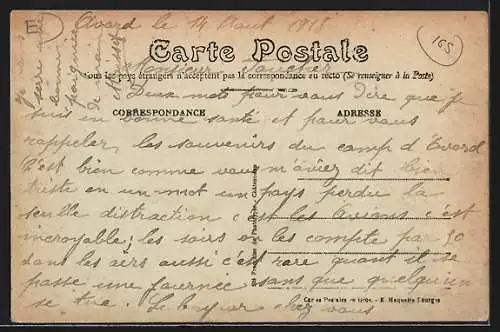 E
165
Avord le 14 Aout 1918
Carte Postale
Monsieur Faucher
Tous les pays étrangers n'acceptent pas la correspondance au recto (Se renseigner à la Poste)
Deux mots pour vous dire que je
CORRESPONDANCE
ADRESSE
suis en bonne santé et pour vous
rappeler les souvenirs du camp d'Avord
C'est bien comme vous m'aviez dit bien
triste en un mot un pays perdu la
seulle distraction c'est les Avions c'est
incroyable; les soirs on les compte par 50
dans les airs aussi c'est rare quant il se
passe une journée sans que quelqu'un
se tue. Le bonjour chez vous
serre une
bonne
poignée
de main